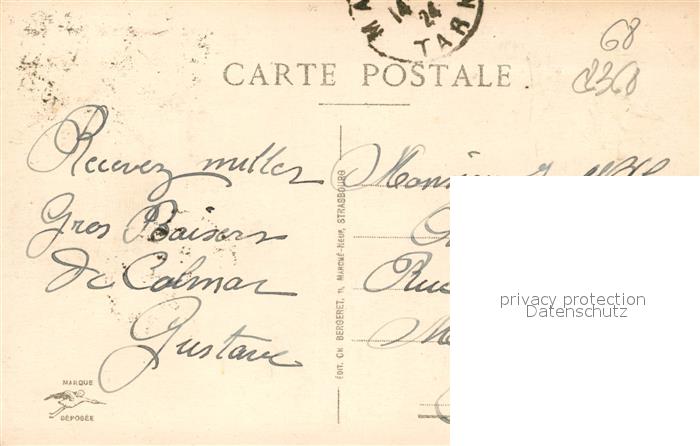 MA
14
24
TARN
68
CARTE POSTALE
Recevez milles
Gros Baisers
de Colmar
Gustave
ÉDIT. CH BERGERET, 11, MARCHÉ-NEUF, STRASBOURG
Monsieur
Rue
MARQUE
DÉPOSÉE
privacy protection
Datenschutz